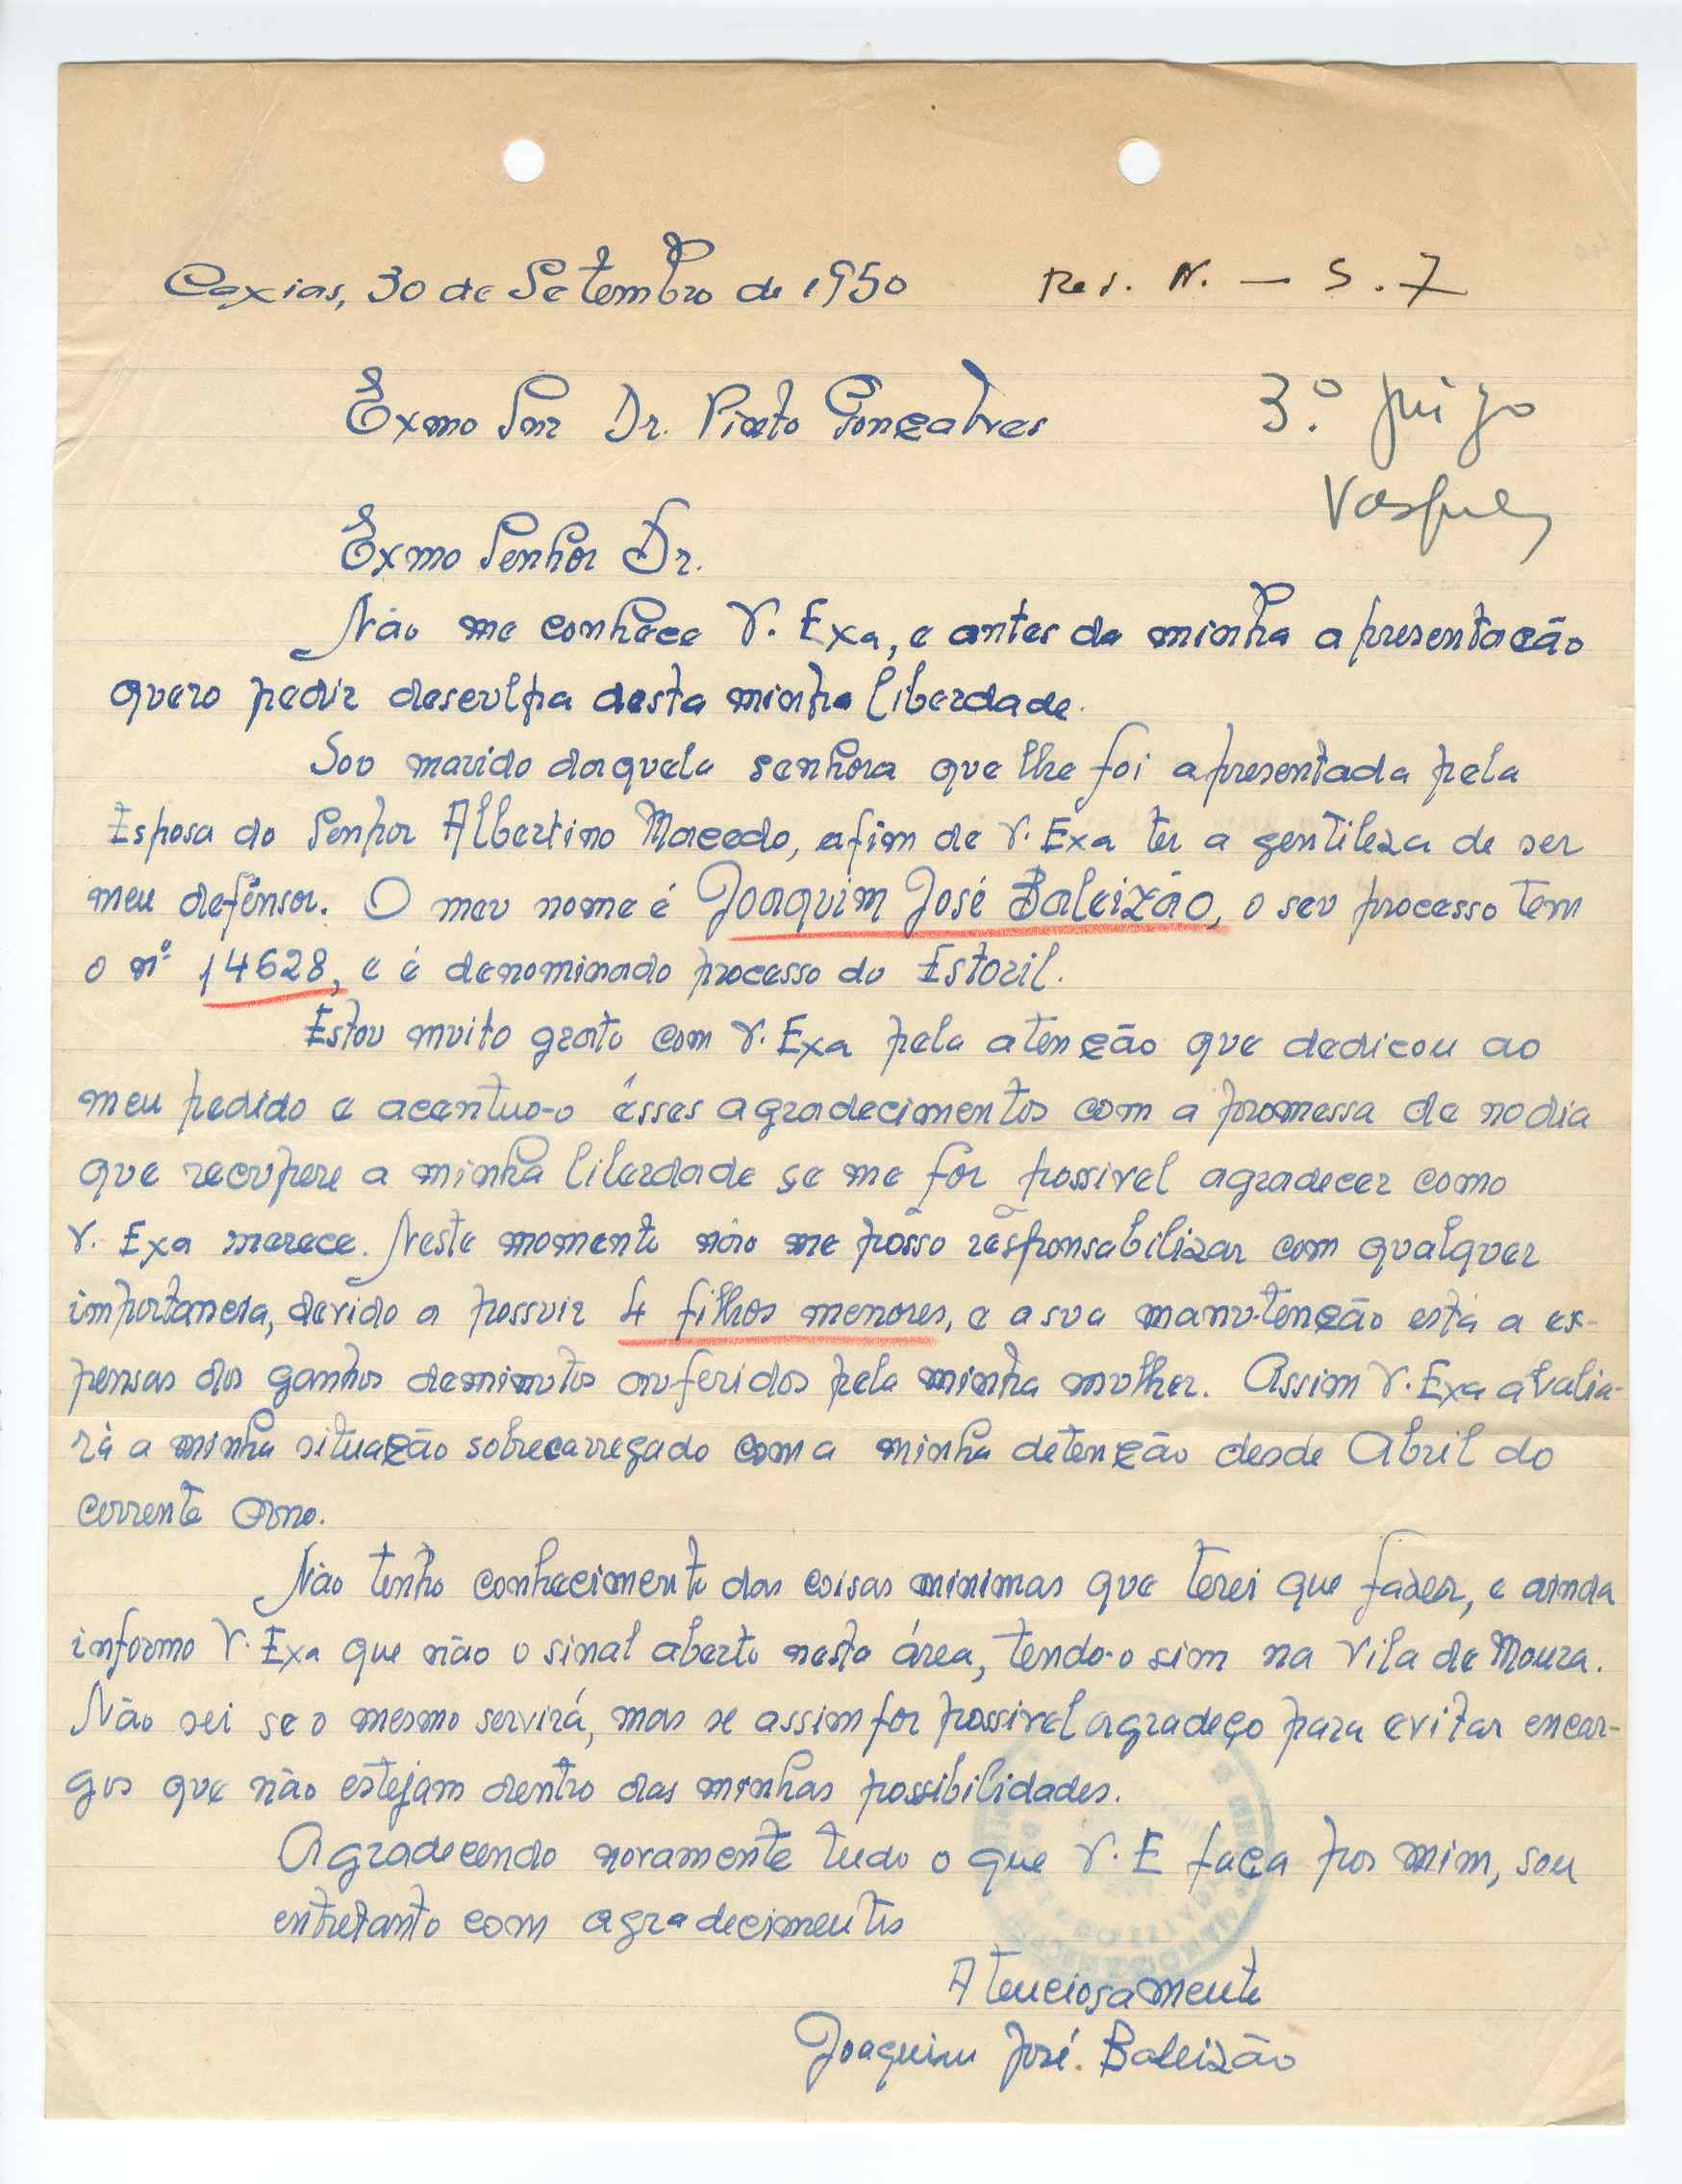 Caxias, 30 de Setembro de 1950 Red. N. — S. 7
Exmo Snr Dr. Pinto Gonçalves
3.º juizo
Vasques
Exmo Senhor Dr.
Não me conhece V. Exa, e antes da minha apresentação
quero pedir desculpa desta minha liberdade.
Sou marido daquela senhora que lhe foi apresentada pela
Esposa do Senhor Albertino Macedo, afim de V. Exa ter a gentileza de ser
meu defensor. O meu nome é Joaquim José Baleizão, o seu processo tem
o nº 14628, e é denominado processo do Estoril.
Estou muito grato com V. Exa pela atenção que dedicou ao
meu pedido e acentuo-o ésses agradecimentos com a promessa de no dia
que recupere a minha liberdade se me fôr possivel agradecer como
V. Exa merece. Neste momento não me posso responsabilizar com qualquer
importancia, devido a possuir 4 filhos menores, e a sua manutenção está a ex-
pensas dos ganhos deminutos auferidos pela minha mulher. Assim V. Exa avalia-
rá a minha situação sobrecarregado com a minha detenção desde Abril do
corrente ano.
Não tenho conhecimento das coisas minimas que terei que fazer, e ainda
informo V. Exa que não o sinal aberto nesta área, tendo-o sim na Vila de Moura.
Não sei se o mesmo servirá, mas se assim for possivel agradeço para evitar encar-
gos que não estejam dentro das minhas possibilidades.
Agradecendo novamente tudo o que V. E faça por mim, sou
entretanto com agradecimentos
Atenciosamente
Joaquim José Baleizão